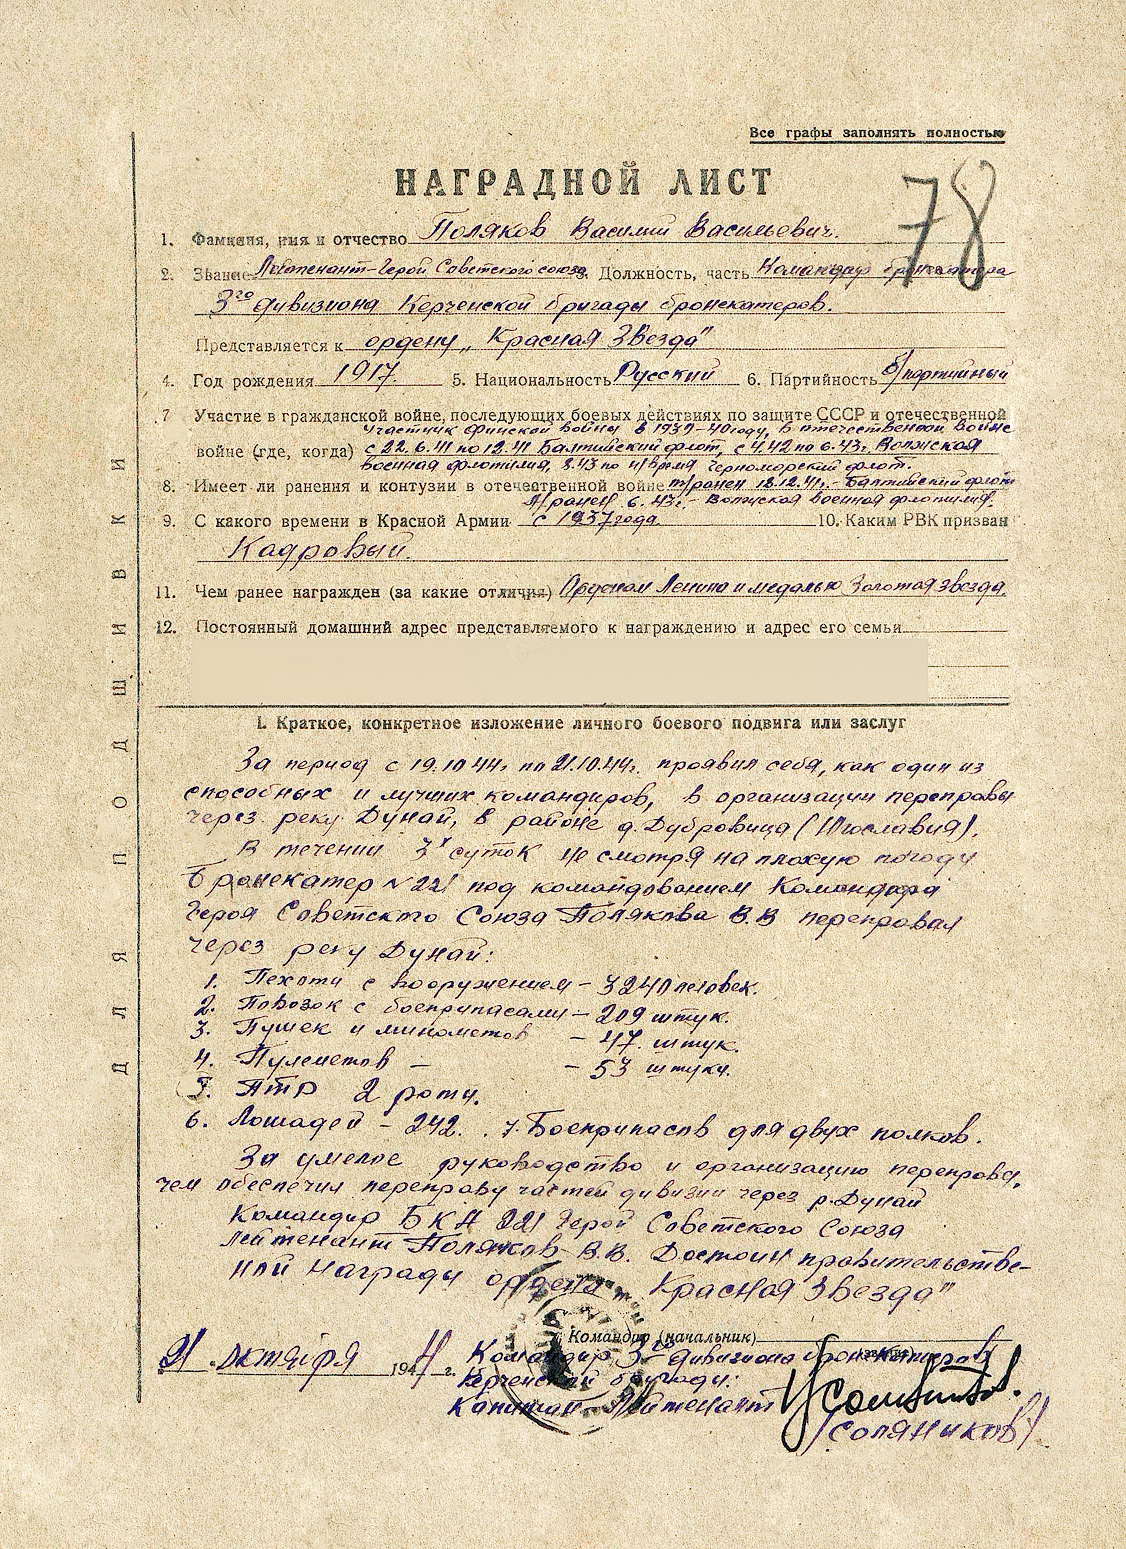 Все графы заполнять полностью
НАГРАДНОЙ ЛИСТ
78
1. Фамилия, имя и отчество Поляков Василий Васильевич.
2. Звание Лейтенант-Герой Советского союза 3. Должность, часть Командир бронекатера
3го дивизиона Керченской бригады бронекатеров.
Представляется к ордену „Красная Звезда"
4. Год рождения 1917. 5. Национальность Русский 6. Партийность б/партийный
7 Участие в гражданской войне, последующих боевых действиях по защите СССР и отечественной
участник финской войны в 1939-40 году, в отечественной войне
войне (где, когда) с 22.6.41 по 12.41 Балтийский флот, с 4.42 по 6.43г. Волжская
военная флотилия, 8.43 по н/время Черноморский флот.
8. Имеет ли ранения и контузии в отечественной войне т/ранен 18.12.41г. - Балтийский флот
Л/ранен 6. 43г. - Волжская военная флотилия.
9. С какого времени в Красной Армии с 1937 года. 10. Каким РВК призван
Кадровый.
11. Чем ранее награжден (за какие отличия) Орденом Ленина и медалью Золотая Звезда.
12. Постоянный домашний адрес представляемого к награждению и адрес его семьи
ДЛЯ ПОДШИВКИ
I. Краткое, конкретное изложение личного боевого подвига или заслуг
За период с 19.10 44г. по 21.10.44г. проявил себя, как один из
способных и лучших командиров, в организации переправы
через реку Дунай, в районе д. Дубровица (Югославия).
В течении 3х суток не смотря на плохую погоду
Бронекатер N 221 под командованием Командира
Героя Советского Союза Полякова В.В переправил
через реку Дунай:
1. Пехоты с вооружением - 3240 человек.
2. Повозок с боеприпасами - 209 штук.
3. Пушек и минометов - 47. штук.
4. Пулеметов - - 53 штуки.
5. ПТР 2 роты.
6. Лошадей - 242. . 7. Боеприпасов для двух полков.
За умелое руководство и организацию переправы,
чем обеспечил переправу частей дивизии через р. Дунай
Командир БКА 221 Герой Советского Союза
лейтенант Поляков В.В. Достоин правительстве-
ной награды ордена „Красная Звезда"
Командир (начальник)
21 октября 1944 г. Командир 3го дивизиона бронекатеров
Керченской бригады:
Капитан-Лейтенант
/Соляников/